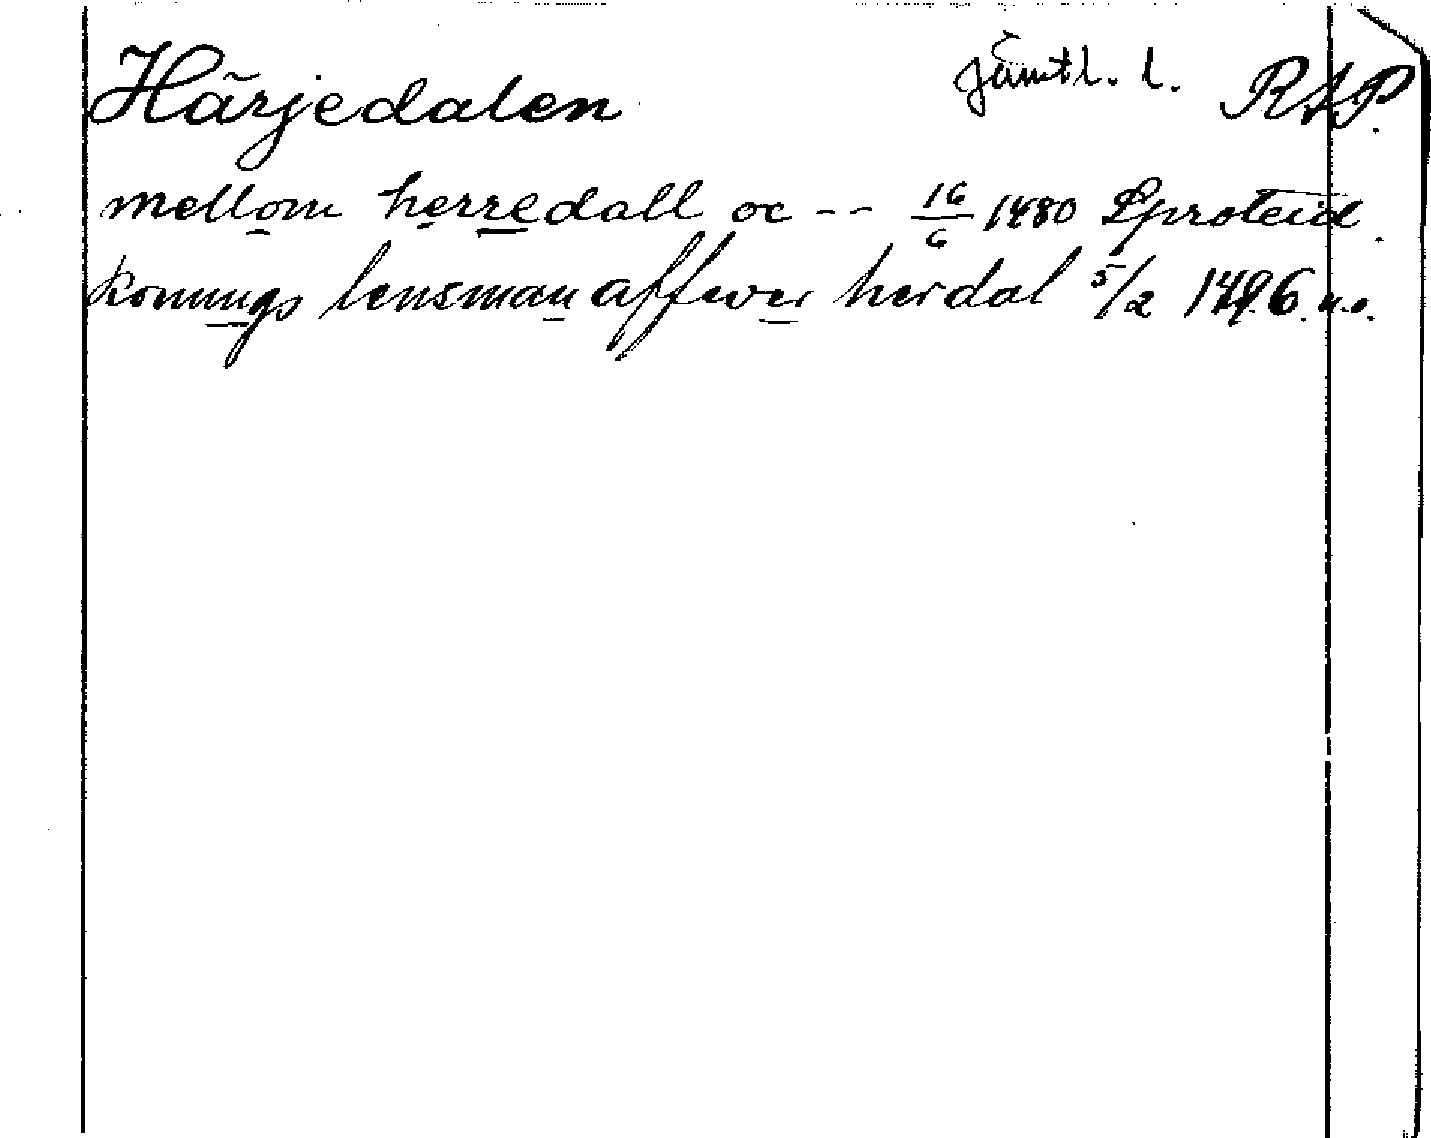 Härjedalen jämtl. l. RAP.
mellom herredall oc -- 16/6 1480 Sproteid.
konungs lensman affwer herdal 5/2 1496 u.o.